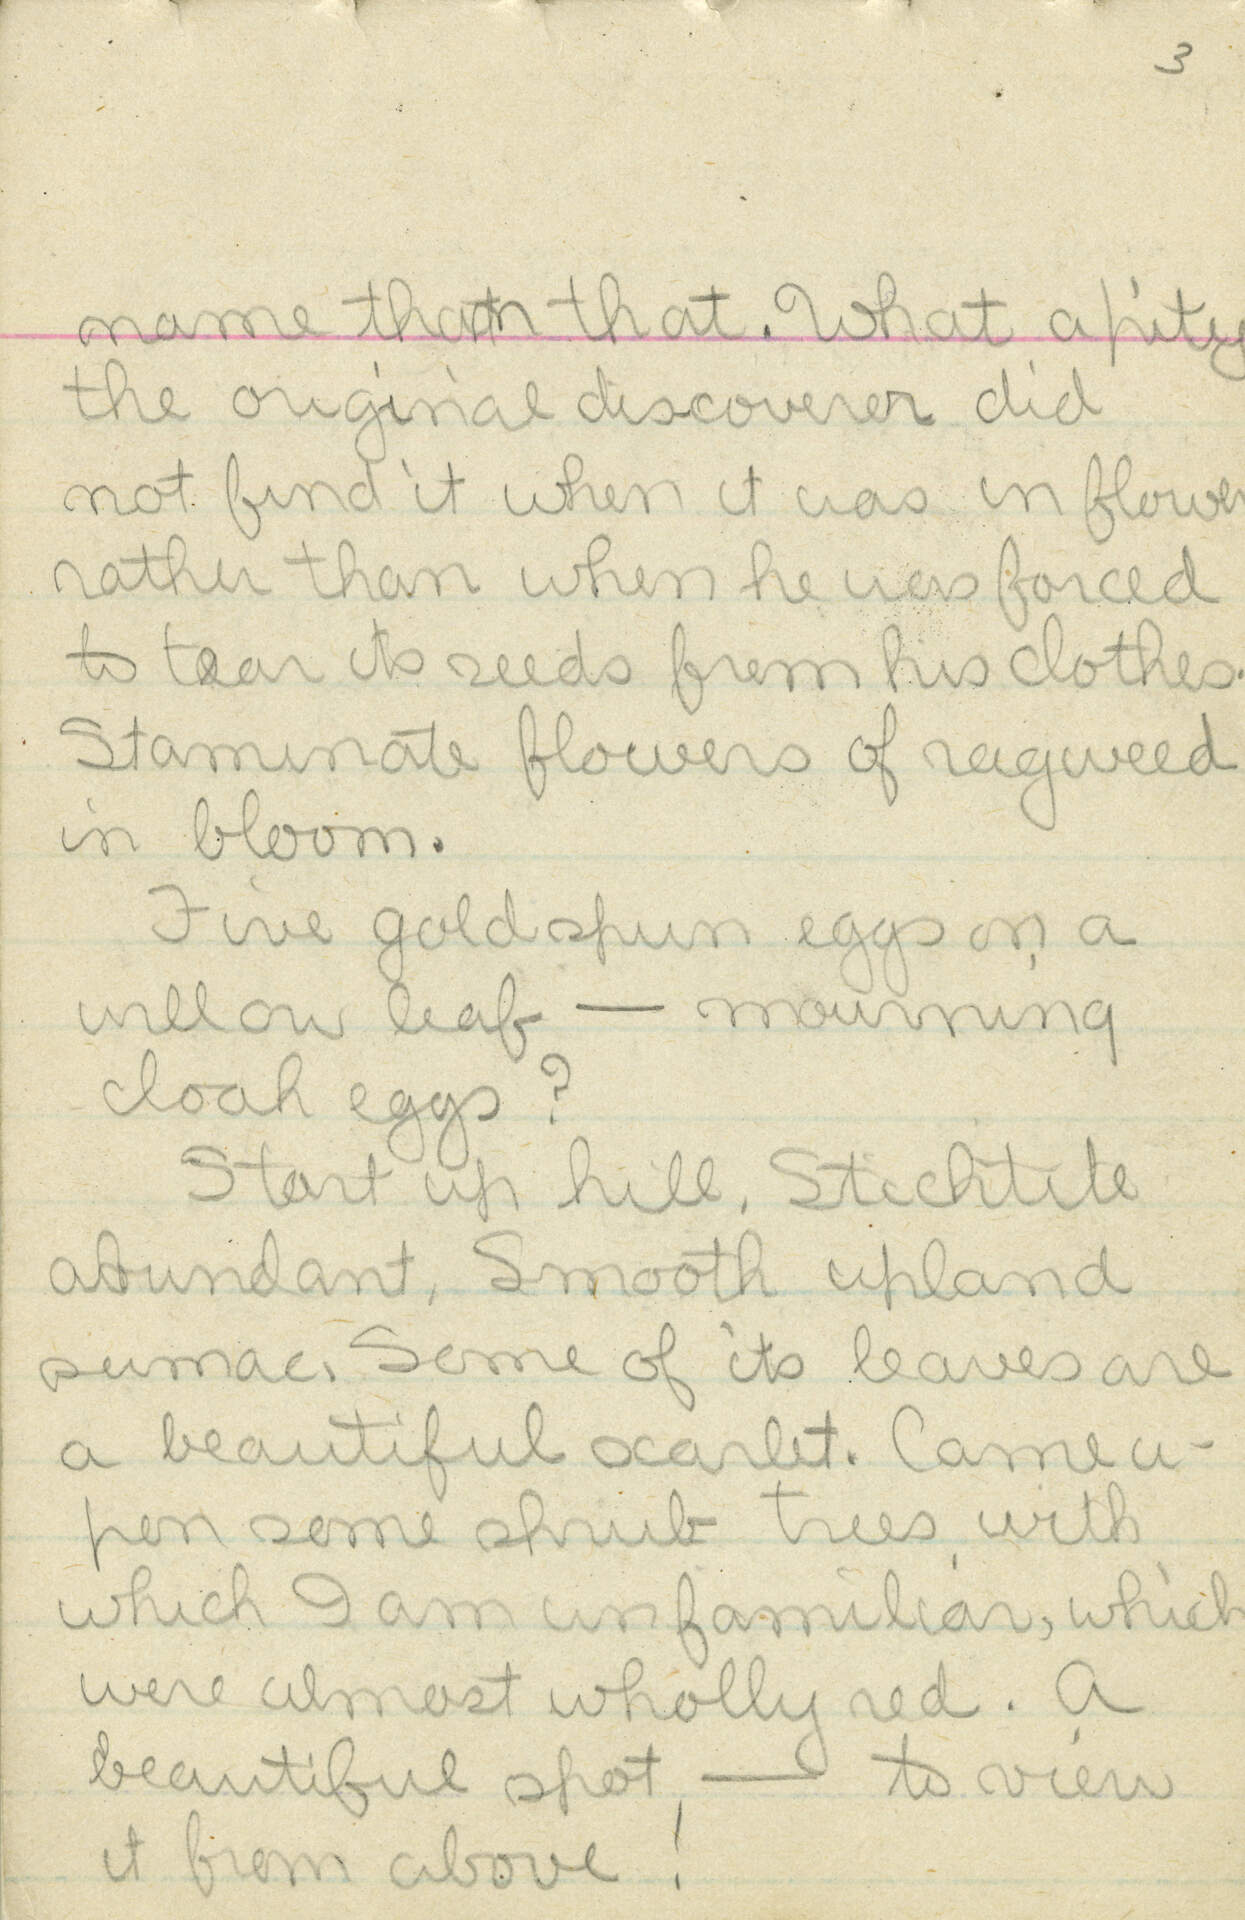 3
name than that. What a pity
the original discoverer did
not find it when it was in flower
rather than when he was forced
to tear its seeds from his clothes.
Staminate flowers of ragweed
in bloom.
Five gold spun eggs on a
willow leaf — mourning
cloak eggs?
Start up hill. Sticktite
abundant. Smooth upland
sumac. Some of its leaves are
a beautiful scarlet. Came u-
pon some shrub trees, with
which I am unfamiliar, which
were almost wholly red. A
beautiful spot, — to view
it from above!